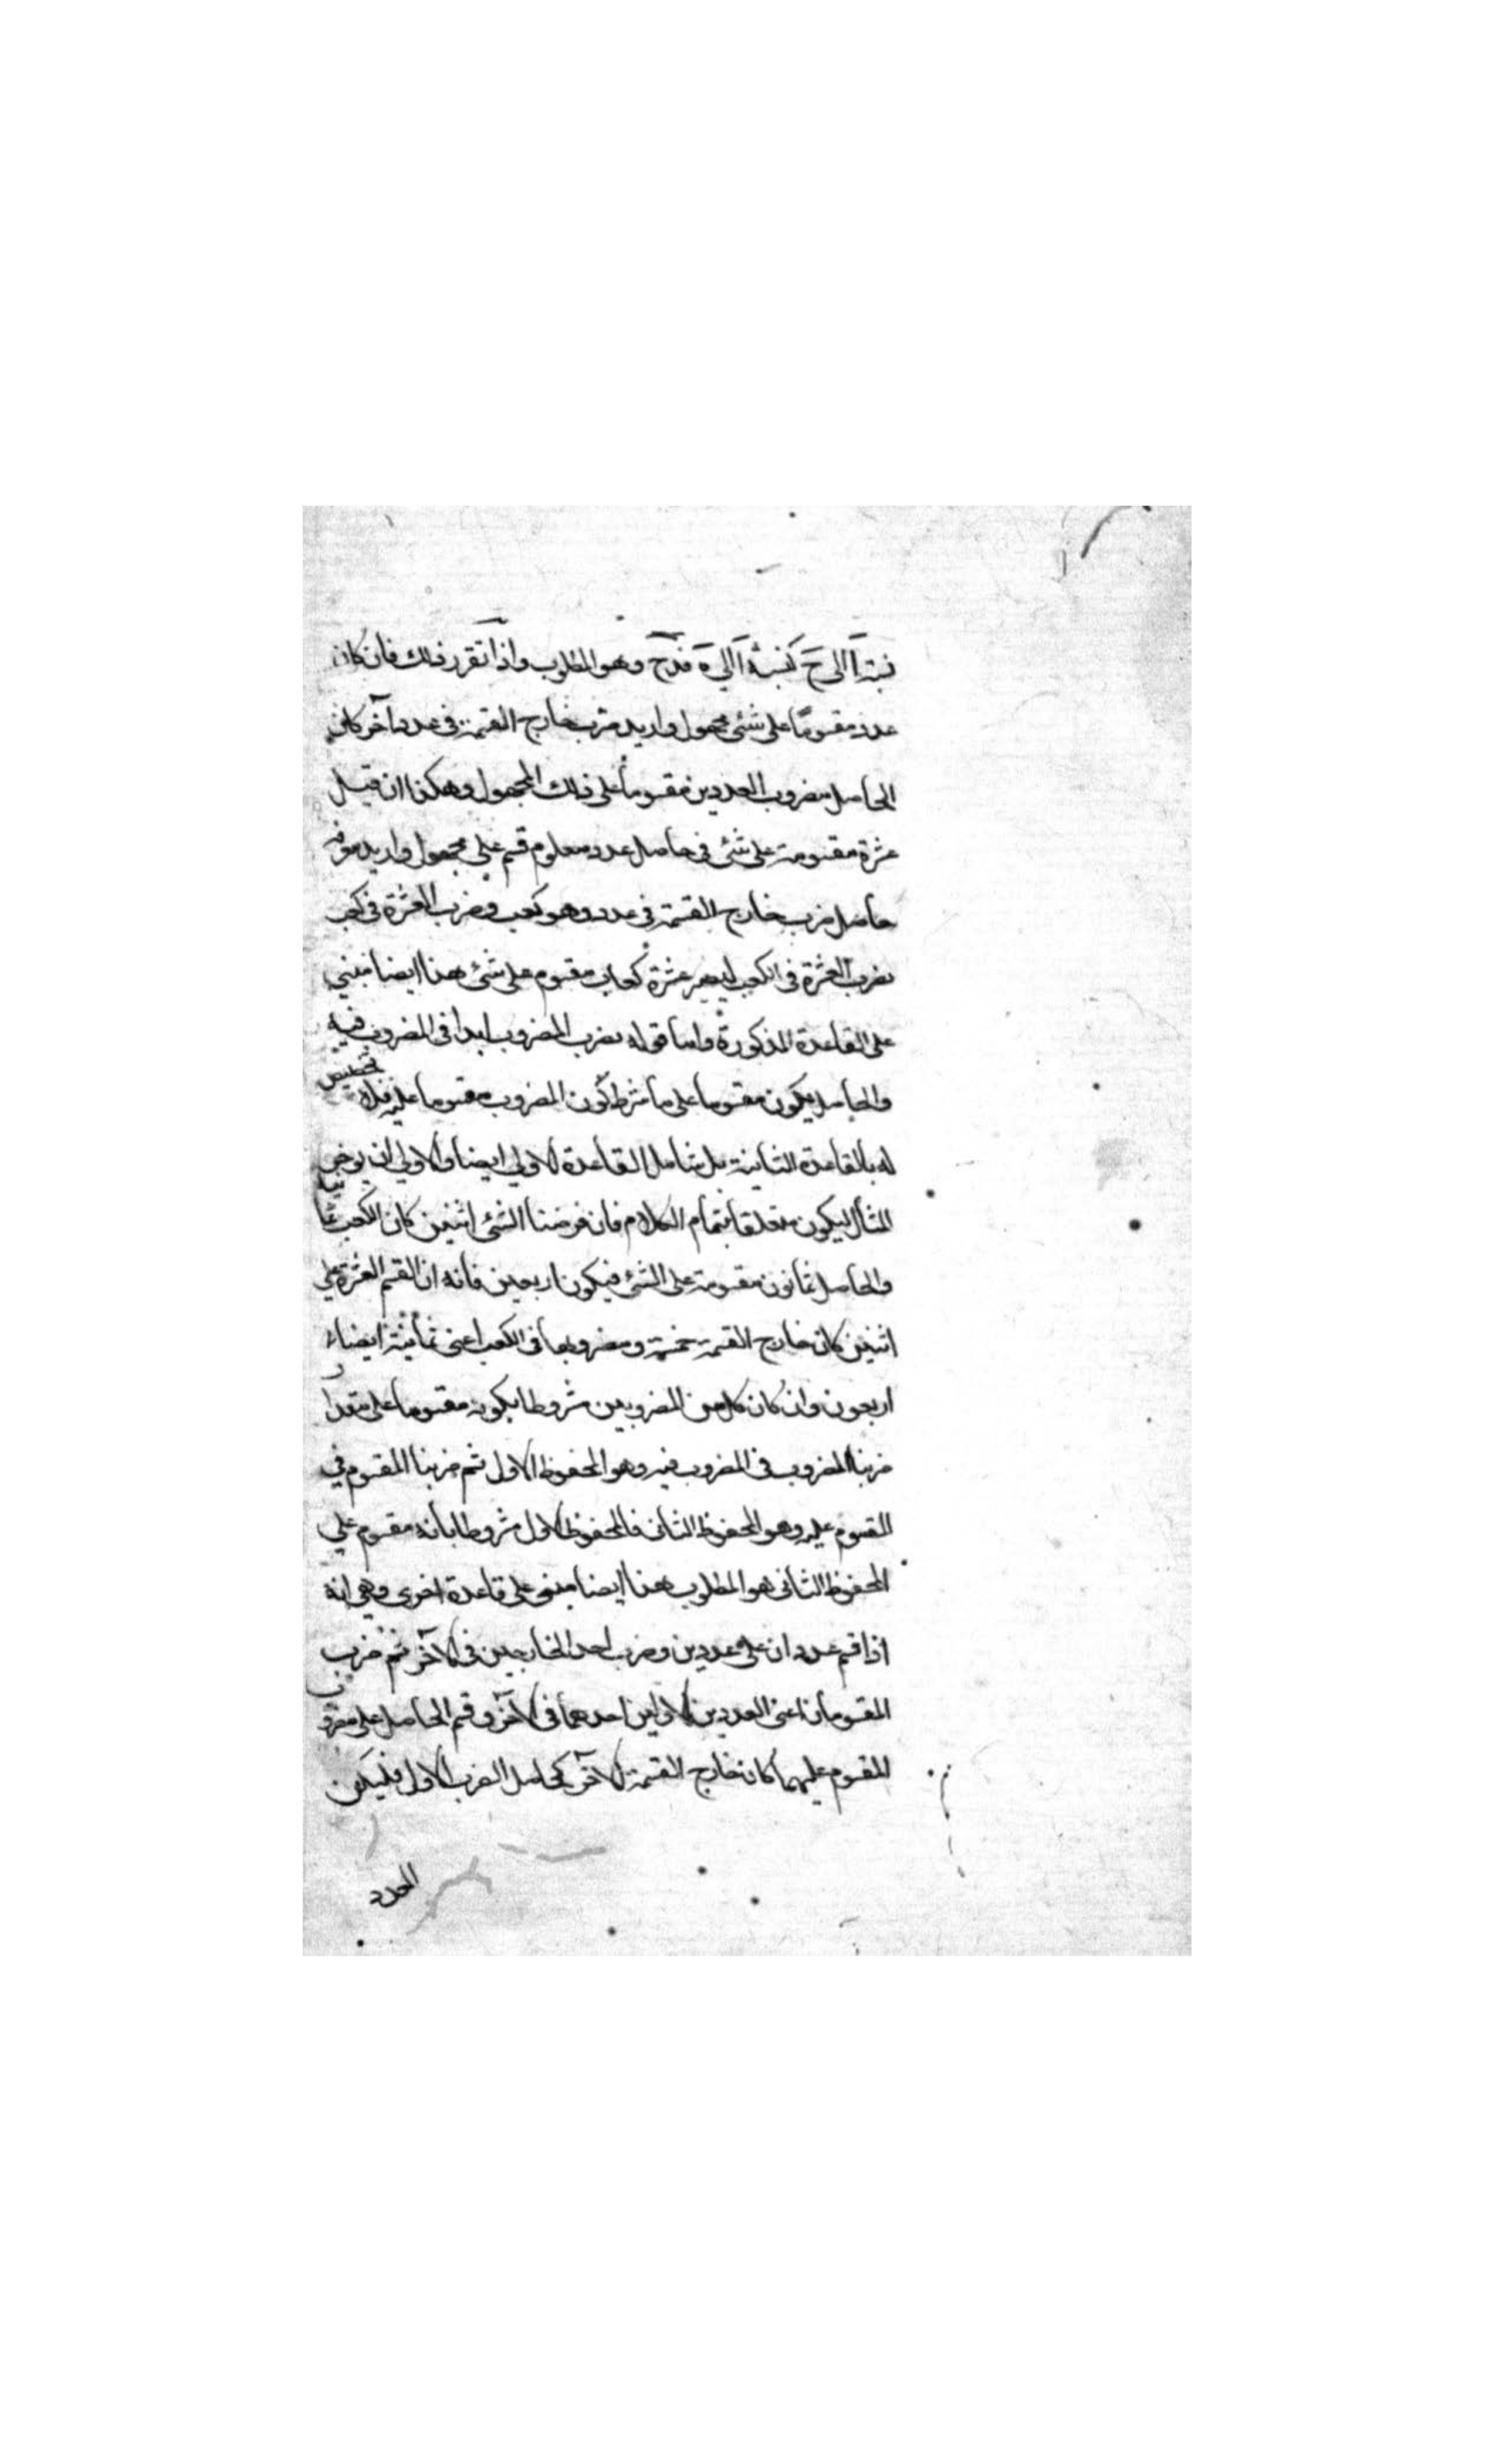 نسبة آ الى ح كنسبة آ الى ة فدح وهو المطلوب واذا تقرر ذلك فان كان
عدد مقسومًا على شئ مجهول واريد ضرب خارج القسمة فى عدد آخر كان
الحاصل مضروب العددين مقسوما على ذلك المجهول وهكذا ان قيل
عشرة مقسومة على شئ فى حاصل عدد معلوم قسم على مجهول واريد معرفة
حاصل ضرب خارج القسمة فى عدد وهو كعب وضرب العشرة فى كعب
نضرب العشرة فى الكعب ليصير عشرة كعاب مقسوم على شئ هذا ايضا مبنى
على القاعدة المذكورة واما قوله نضرب المضروب ابدا فى المضروب فيه
والحاصل يكون مقسوما على ما شرط كون المضروب مقسوما عليه فلا تخصيص
له بالقاعدة الثانية بل شامل القاعدة الاولى ايضا والاولى ان يوخر
المثال ليكون متعلقا بتمام الكلام فان فرضنا الشئ اثنين كان الكعب ثمانيا
والحاصل ثمانون مقسومة على الشئ فيكون اربعين فانه ان القسم العشرة على
اثنين كان خارج القسمة خمسة ومضروبها فى الكعب اعنى ثمانية ايضا
اربعون وان كان كل من المضروبين مشروطا بكونه مقسوما على مقدار
ضربنا المضروب فى المضروب فيه وهو المحفوظ الاول ثم ضربنا المقسوم فى
المقسوم عليه وهو المحفوظ الثانى فالمحفوظ الاول مشروطا بانه مقسوم على
المحفوظ الثانى هو المطلوب هذا ايضا مبنى على قاعدة اخرى وهى انه
اذا قسم عددان على عددين وضرب احد الخارجين فى الآخر ثم ضرب
المقسومان اعنى العددين الاولين احدهما فى الآخر وقسم الحاصل على مضروب
المقسوم عليهما كان خارج القسمة الآخر كحاصل الضرب الاول فليكن
العدد